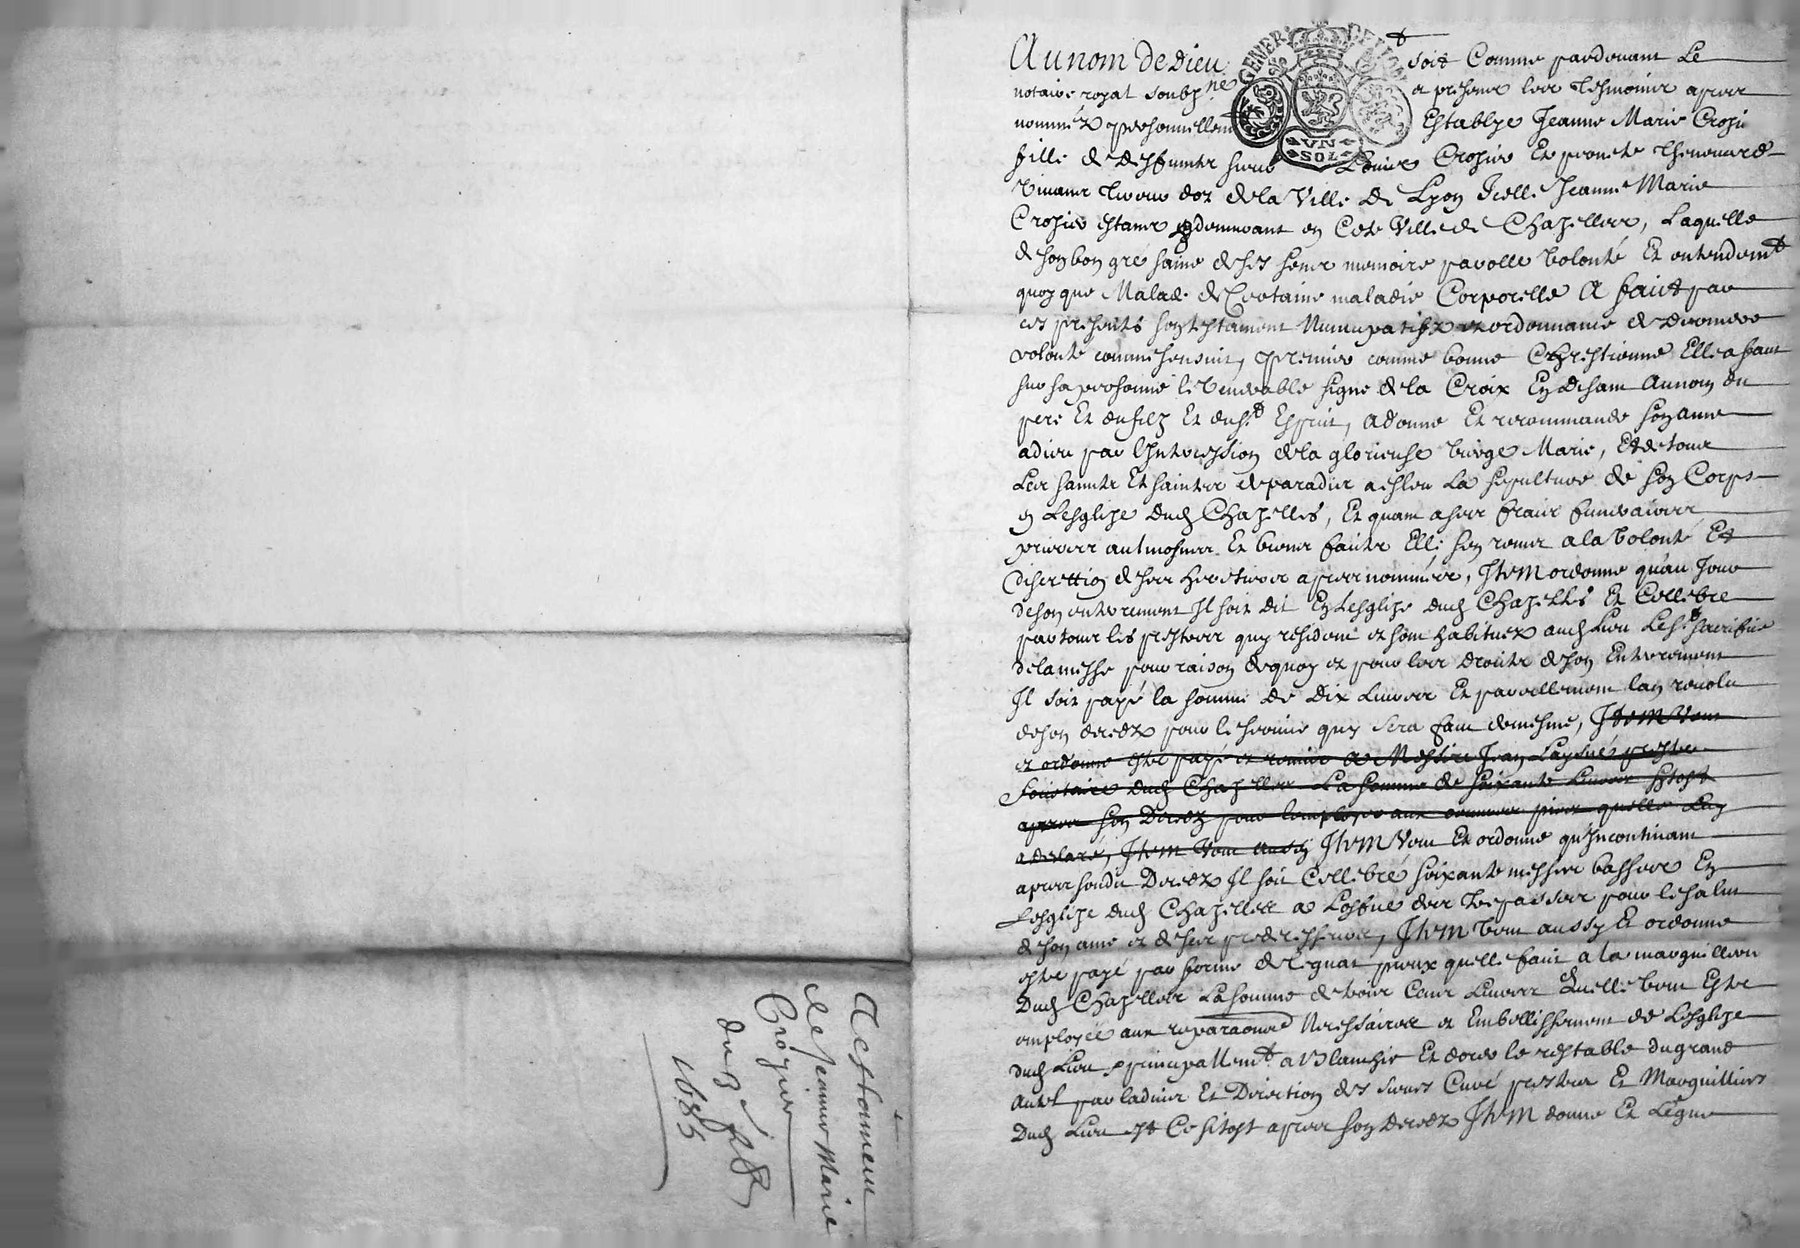 Au nom de Dieu soit Comme pardevant Le
notaire royal soubzne a presence les tesmoins apres
nommez personnellemt Establye Jeanne Marie Crosie
fille de deffuncts sieur Louis Crosier Et
vivants de la Ville de Lyon Icelle Jeanne Marie
Crosier estant en Cete Ville de Chazelles, Laquelle
de son bon gré saine de ses sens memoire parolle volonté Et entendemt
quoy que Malade de Certaine maladie Corporelle A faict par
ces presents son testament Nuncupatif et ordonnance de derniere
volonté comme sensuit, premier comme bonne Chrestienne Elle a faict
sur sa personne le Venerable signe de la Croix En disant Au nom du
pere Et du filz Et du St Esprit, a donne Et recommande son ame
a dieu par l'Intercession de la glorieuse vierge Marie, Et de tous
Les saincts Et sainctes de paradis a esleu La sepulture de son Corps
en Lesglize dud Chazelles, Et quant a ses frais funeraires
prieres aulmosnes Et biens faicts Elle sen remet a la volonté Et
discrettion de ses heretiers apres nommées, Item ordonne qu'au Jour
de son enterrement Il soit dit En Lesglize dud Chazelles Et Cellebre
par tous les prestres quy resident et sont habituez aud Lieu Le St sacrifice
de la messe pour raison de quoy et pour les droicts de son Enterrement
Il soit payé la somme de Dix Livres Et pareillement lan revolu
de son deces pour le service quy sera faict de mesme, Item Veut
et ordonne estre payé et remis a Messire Jean prestre
Societaire dud Chazelles La somme de soixante Livres sitost
apres son Deces pour lemployer aux œuvres pies quelle Luy
a declaré, Item Veut aussy Item Veut Et ordonne qu'Incontinant
apres sondit Deces Il soit Cellebré soixante messes basses En
Lesglize dud Chazelles a Loffice des trespasses pour le salut
de son ame et de ses predecesseurs, Item veut aussy Et ordonne
estre payé par forme de Legat pieux quelle faict a la marguillerie
Dud Chazelles La somme de trois Cent Livres Quelle veut Estre
employée aux reparaons Necessaires et Embellissement de Lesglize
dud Lieu principallemt a Blanchir Et dorer le restable du grand
Autel par ladvis Et Direction des sieurs Curé prestres Et Marguilliers
Dud Lieu Et Ce sitost apres son deces Item donne Et Legue
Testament
de Jeanne Marie
Crosier
du 3e
1685
GENER DE LYON
UN
SOL